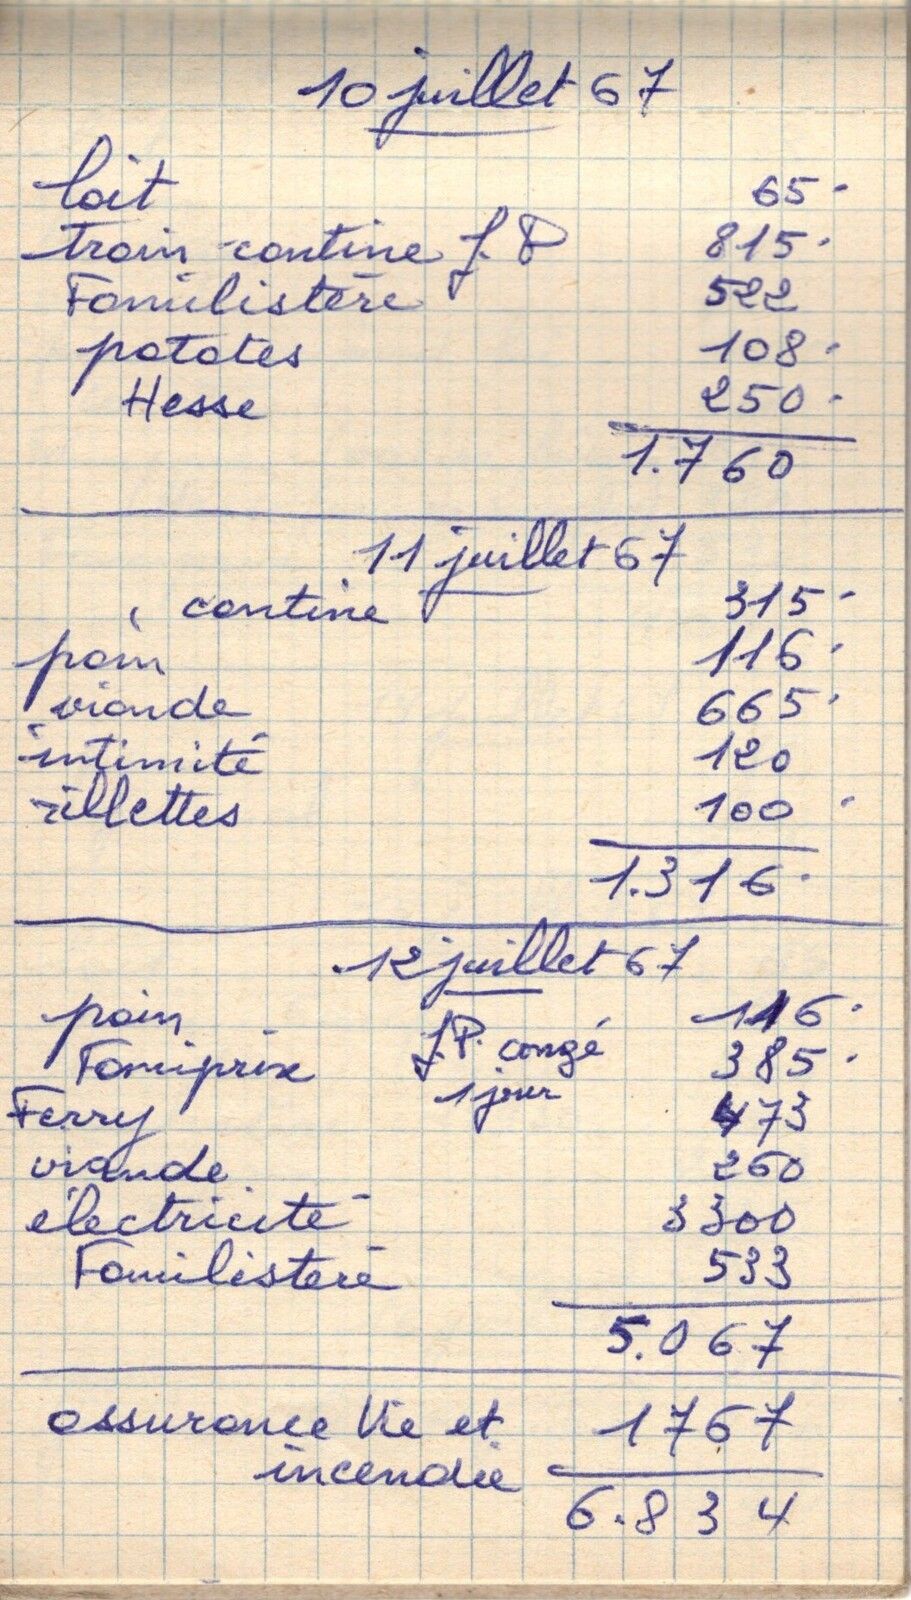 10 juillet 67
lait 65.
train cantine J.P 815.
Familistère 522
patates 108.
Hesse 250.
1.760
11 juillet 67
cantine 315.
pain 116.
viande 665.
intimité 120
rillettes 100.
1.316.
12 juillet 67
pain 116.
Famiprix J.P. congé 385.
1 jour
Ferry 473
viande 260
électricité 3300
Familistère 533
5.067
assurance Vie et 1767
incendie
6.834